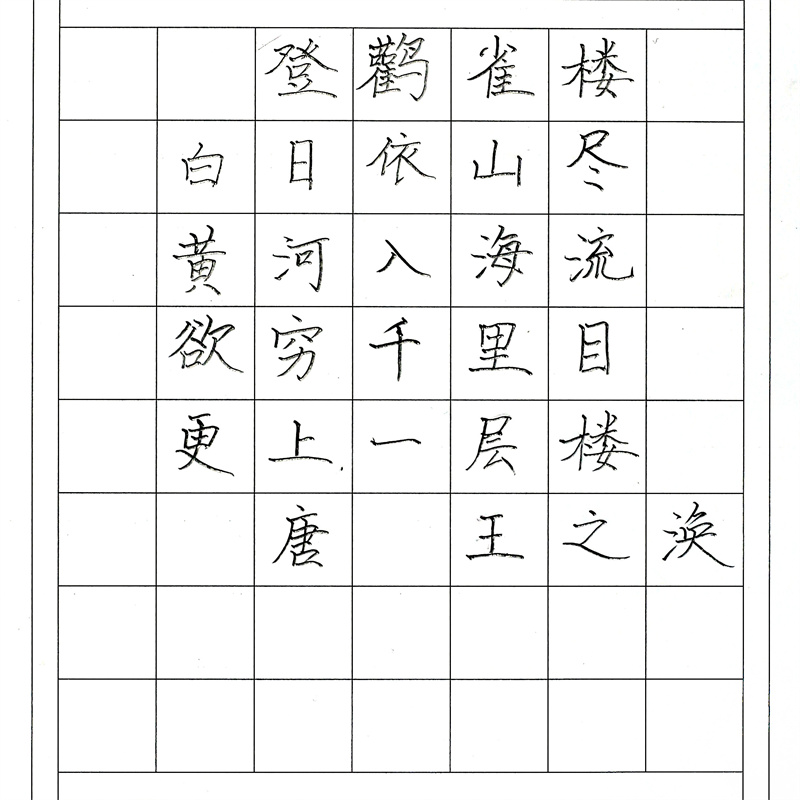 登鸛雀楼
白日依山尽
黄河入海流
欲穷千里目
更上一层楼
唐 王之涣